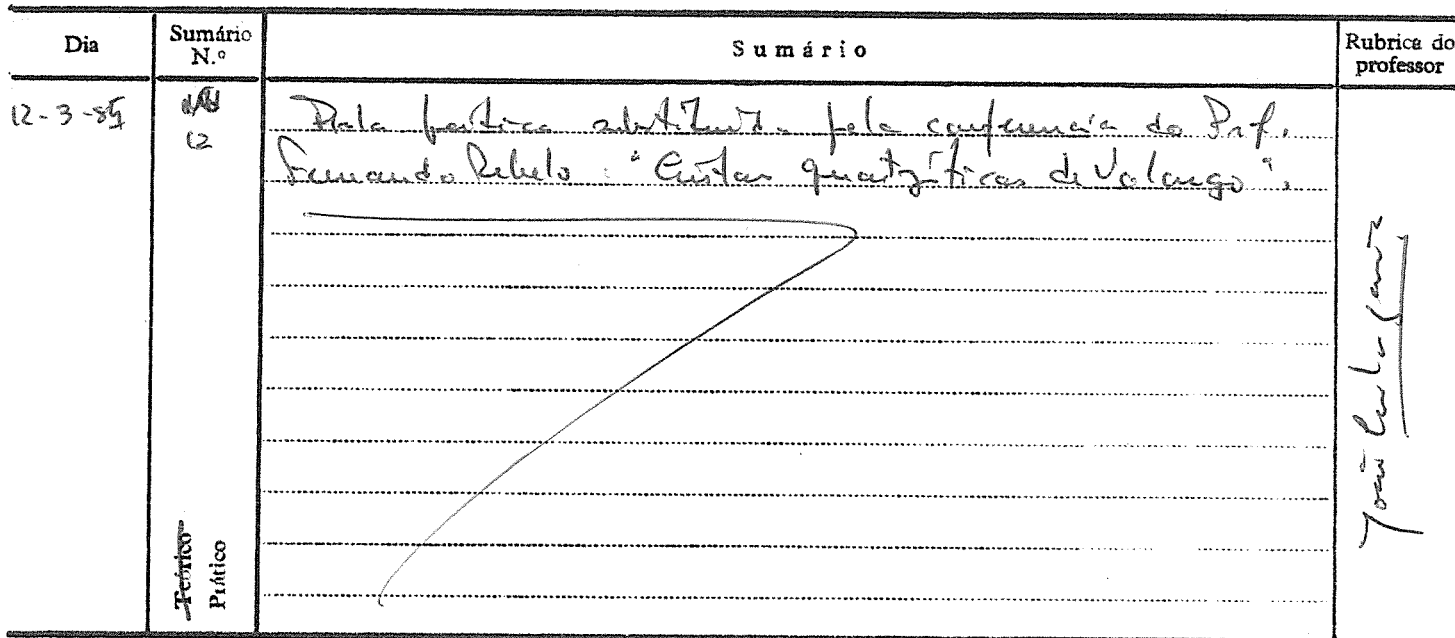 Dia
Sumário N.º
Sumário
Rubrica do professor
12-3-85
12
Aula prática substituída pela conferência do Prof.
Fernando Rebelo: "Cristas quartzíticas de Valongo".
Teórico
Prático
João